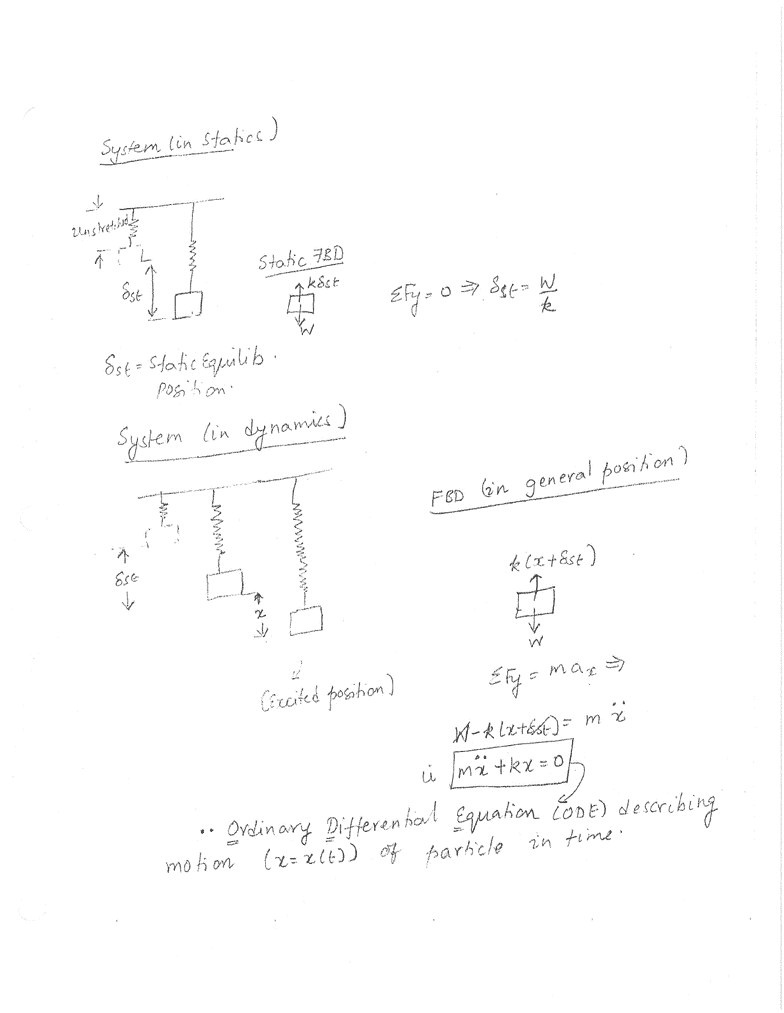 System (in statics)
Unstretched
δst
Static FBD
kδst
W
ΣFy = 0 ⇒ δst = W/k
δst = Static Equilib.
Position.
System (in dynamics)
FBD (in general position)
δst
x
(Excited position)
k(x+δst)
W
ΣFy = m ax ⇒
W-k(x+δst) = m ẍ
mẍ + kx = 0
Ordinary Differential Equation (ODE) describing
motion (x=x(t)) of particle in time.